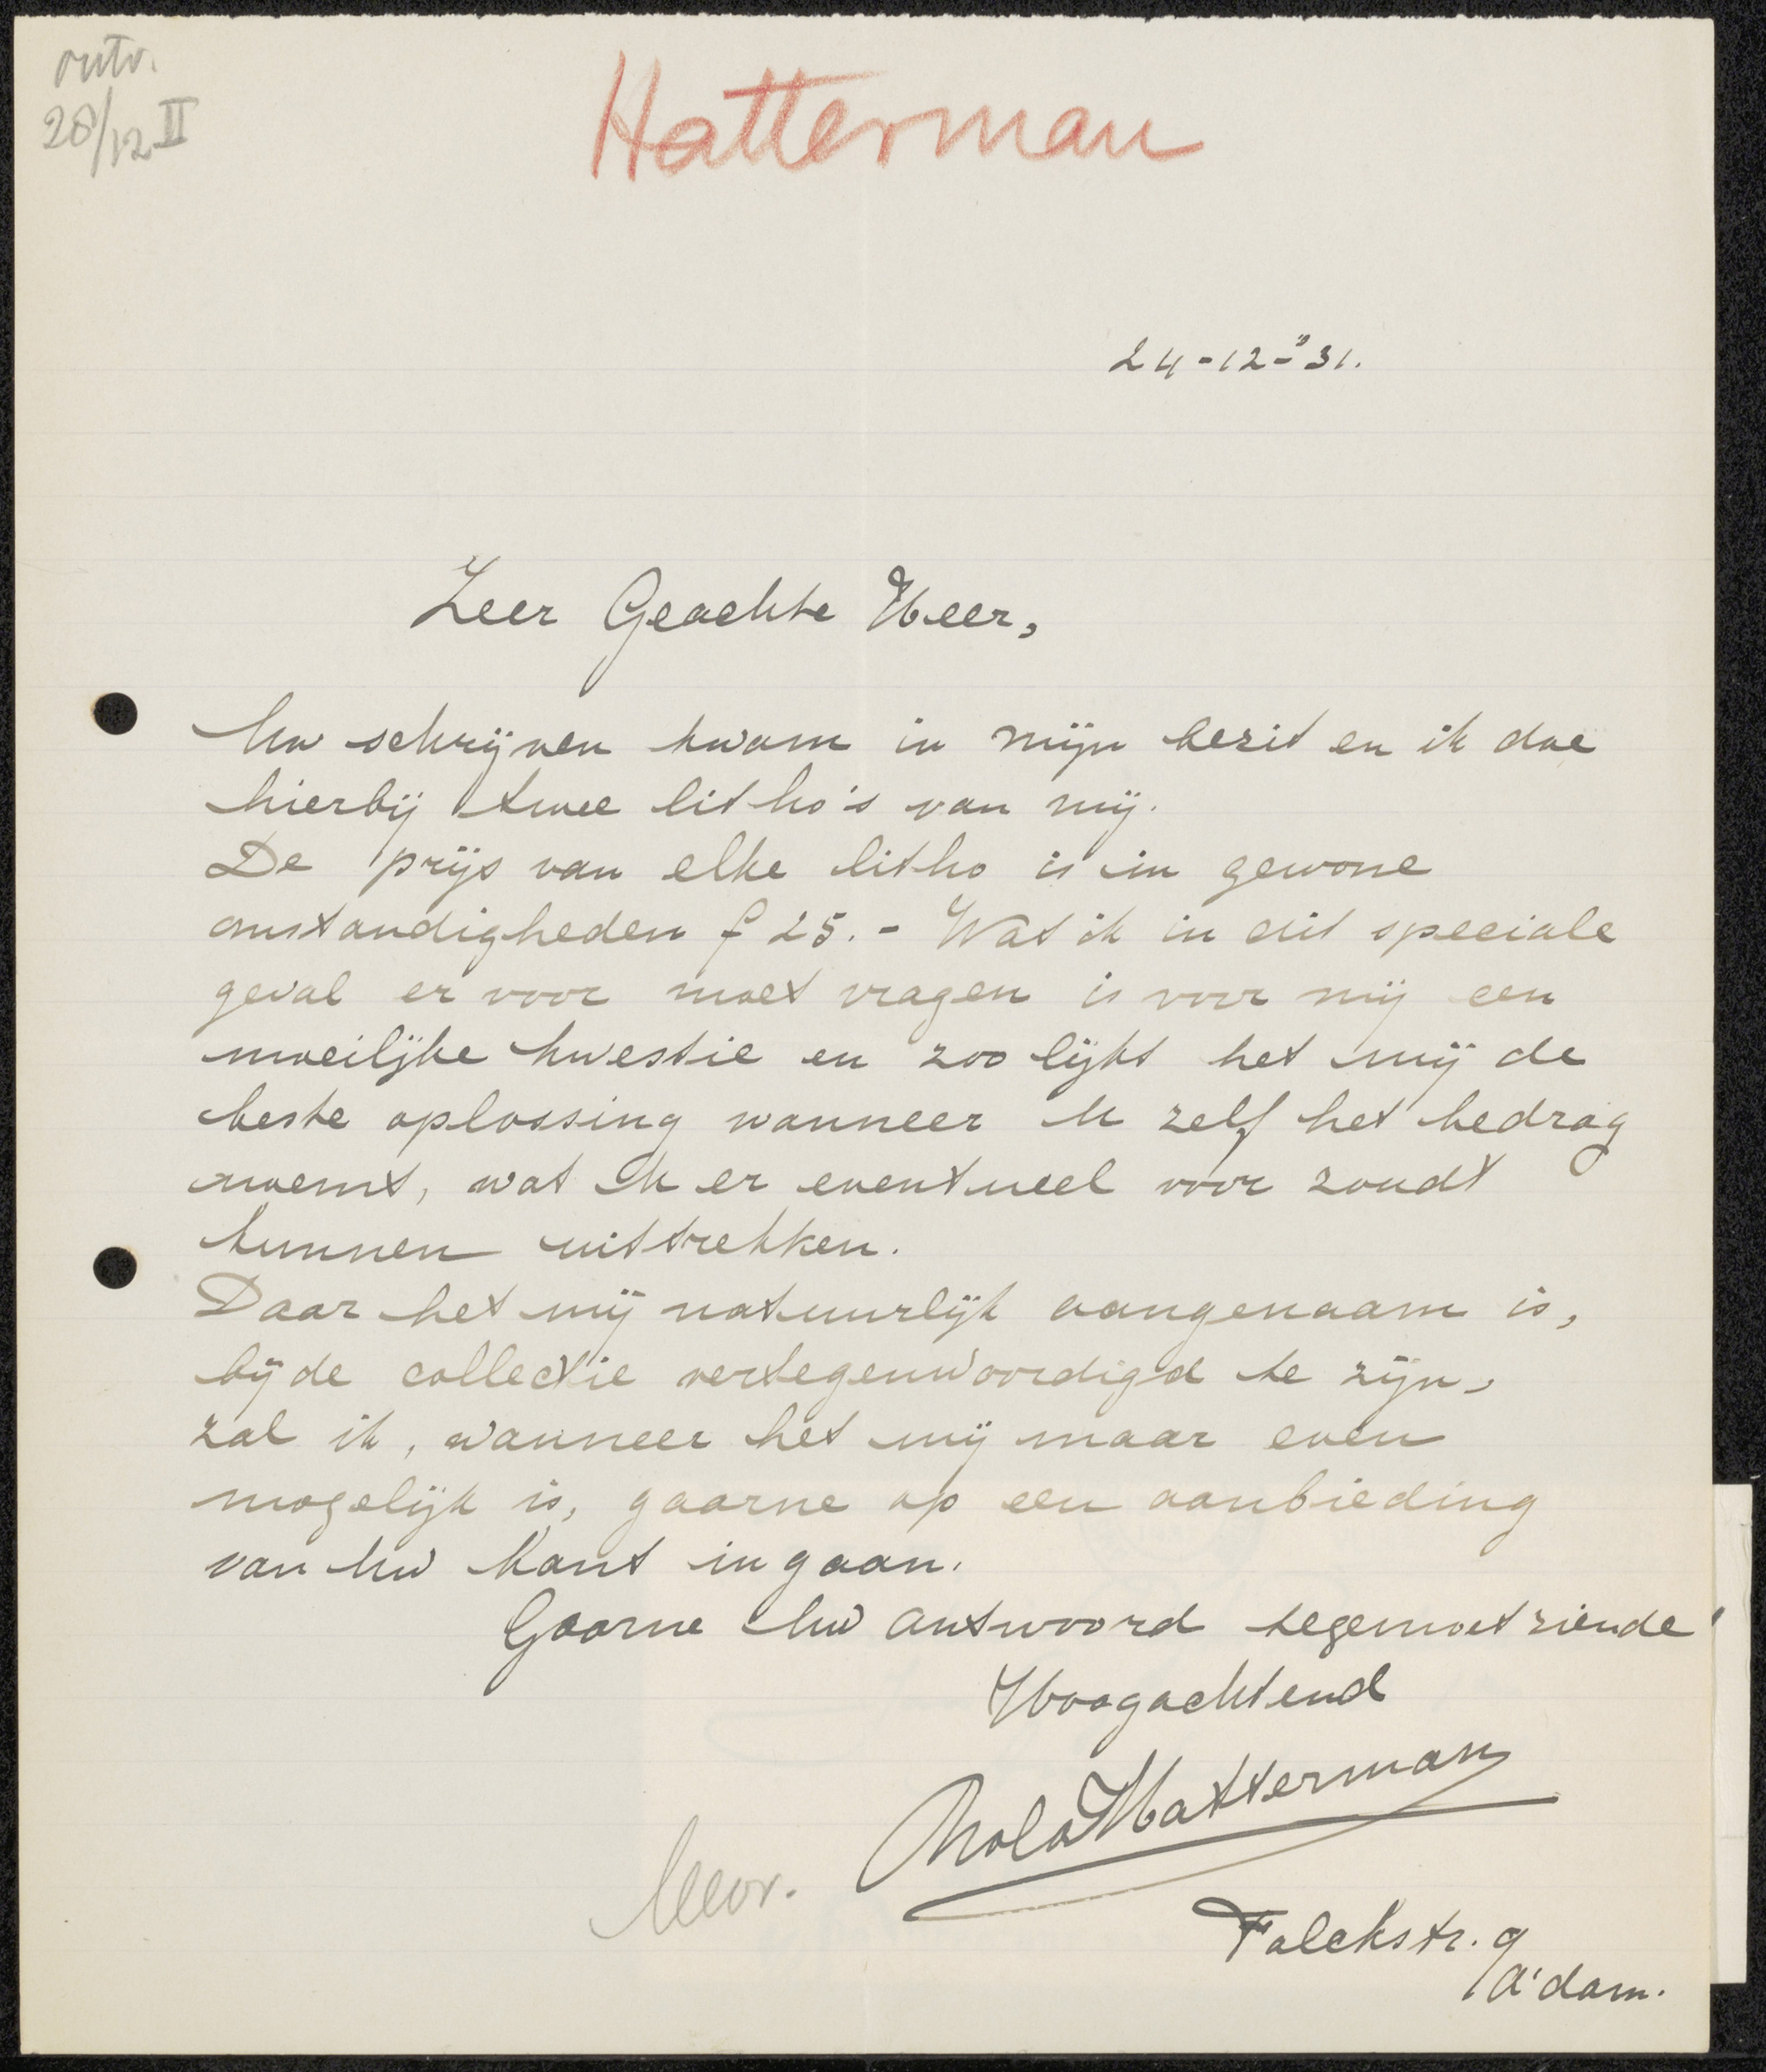 ontv.
28/12 II
Hatterman
24-12-"31.
Zeer Geachte Heer,
Uw schrijven kwam in mijn bezit en ik doe
hierbij twee litho's van mij.
De prijs van elke litho is in gewone
omstandigheden f 25.- Wat ik in dit speciale
geval er voor moet vragen is voor mij een
moeilijke kwestie en zoo lijkt het mij de
beste oplossing wanneer U zelf het bedrag
noemt, wat U er eventueel voor zoudt
kunnen uittrekken.
Daar het mij natuurlijk aangenaam is,
bij de collectie vertegenwoordigd te zijn,
zal ik, wanneer het mij maar even
mogelijk is, gaarne op een aanbieding
van Uw kant ingaan.
Gaarne Uw antwoord tegemoetziende
Hoogachtend
Nola Hatterman
Mevr.
Falckstr. 9
A'dam.